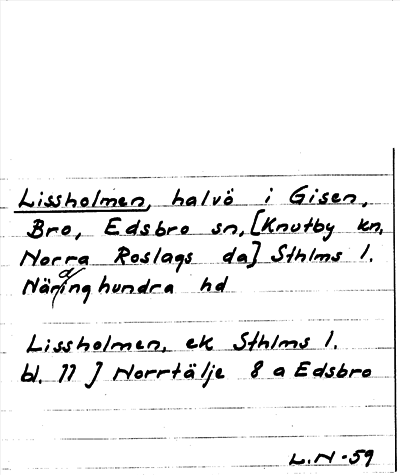 Lissholmen, halvö i Gisen,
Bro, Edsbro sn, [Knutby kn,
Norra Roslags da] Sthlms l.
Närdinghundra hd
Lissholmen, ek Sthlms l.
bl. 77 J Norrtälje 8 a Edsbro
L.N-59